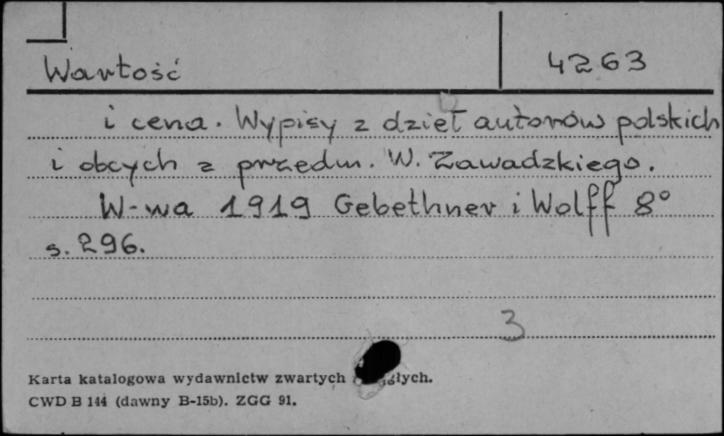 Wartość 4263
i cena. Wypisy z dzieł autorów polskich
i obcych z przedm. W. Zawadzkiego.
W-wa 1919 Gebethner i Wolff 8°
s. 296.
3
Karta katalogowa wydawnictw zwartych
CWD B 144 (dawny B-15b). ZGG 91.